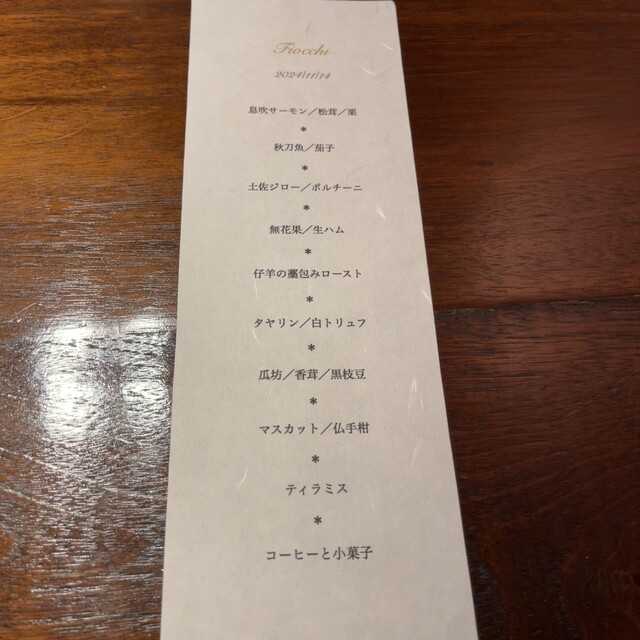 Fiocchi
2024/11/14
息吹サーモン／松茸／栗
*
秋刀魚／茄子
*
土佐ジロー／ポルチーニ
*
無花果／生ハム
*
仔羊の藁包みロースト
*
タヤリン／白トリュフ
*
瓜坊／香茸／黒枝豆
*
マスカット／仏手柑
*
ティラミス
*
コーヒーと小菓子